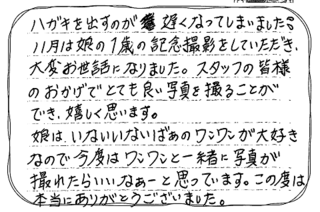 ハガキを出すのが遅くなってしまいました。
11月は娘の1歳の記念撮影をしていただき、
大変お世話になりました。スタッフの皆様
のおかげでとても良い写真を撮ることが
でき、嬉しく思います。
娘は、いないいないばぁのワンワンが大好き
なので今度はワンワンと一緒に写真が
撮れたらいいなぁーと思っています。この度は
本当にありがとうございました。